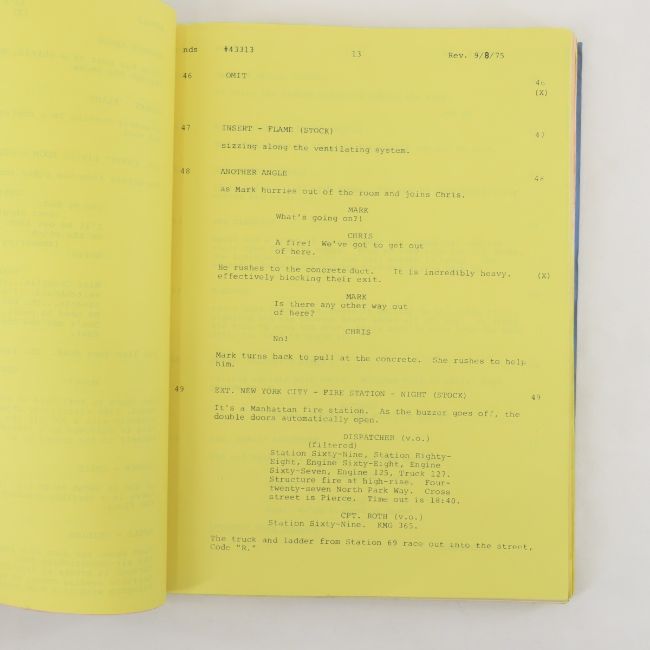 nds #43313 13 Rev. 9/8/75
46 OMIT 46
(X)
47 INSERT - FLAME (STOCK) 47
sizzing along the ventilating system.
48 ANOTHER ANGLE 48
as Mark hurries out of the room and joins Chris.
MARK
What's going on?!
CHRIS
A fire! We've got to get out
of here.
He rushes to the concrete duct. It is incredibly heavy, (X)
effectively blocking their exit.
MARK
Is there any other way out
of here?
CHRIS
No!
Mark turns back to pull at the concrete. She rushes to help
him.
49 EXT. NEW YORK CITY - FIRE STATION - NIGHT (STOCK) 49
It's a Manhattan fire station. As the buzzer goes off, the
double doors automatically open.
DISPATCHER (v.o.)
(filtered)
Station Sixty-Nine, Station Eighty-
Eight, Engine Sixty-Eight, Engine
Sixty-Seven, Engine 125, Truck 127.
Structure fire at high-rise. Four-
twenty-seven North Park Way. Cross
street is Pierce. Time out is 18:40.
CPT. ROTH (v.o.)
Station Sixty-Nine. KMG 365.
The truck and ladder from Station 69 race out into the street,
Code "R."